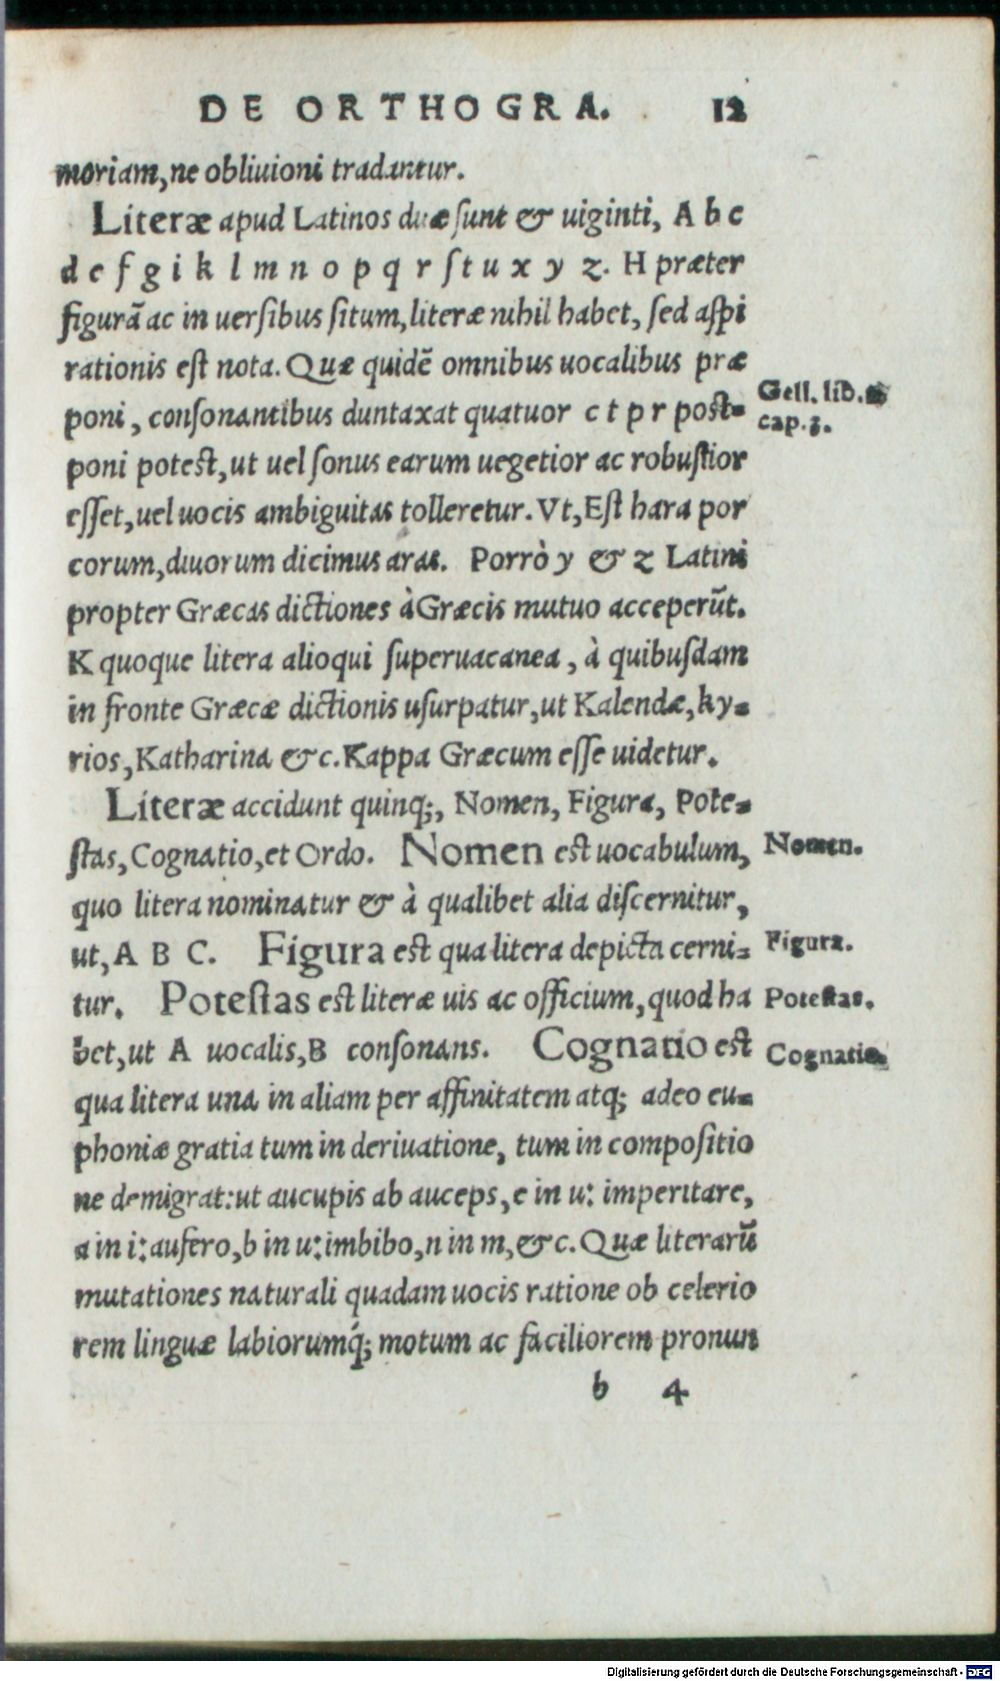 DE ORTHOGRA. 12
moriam, ne obliuioni tradantur.
Literæ apud Latinos duæ sunt & uiginti, A b c
d e f g i k l m n o p q r s t u x y z. H præter
figurã ac in uersibus situm, literæ nihil habet, sed aspi
rationis est nota. Quæ quidẽ omnibus uocalibus præ
poni, consonantibus duntaxat quatuor c t p r post-
Gell. lib.
cap. 3.
poni potest, ut uel sonus earum uegetior ac robustior
esset, uel uocis ambiguitas tolleretur. Vt, Est hara por
corum, diuorum dicimus aras. Porrò y & z Latini
propter Græcas dictiones à Græcis mutuo acceperũt.
K quoque litera alioqui superuacanea, à quibusdam
in fronte Græcæ dictionis usurpatur, ut Kalendæ, ky-
rios, Katharina &c. Kappa Græcum esse uidetur.
Literæ accidunt quinq;, Nomen, Figura, Pote-
stas, Cognatio, et Ordo. Nomen est uocabulum,
Nomen.
quo litera nominatur & à qualibet alia discernitur,
ut, A B C. Figura est qua litera depicta cerni-
Figura.
tur. Potestas est literæ uis ac officium, quod ha
Potestas.
bet, ut A uocalis, B consonans. Cognatio est
Cognatio.
qua litera una in aliam per affinitatem atq; adeo eu-
phoniæ gratia tum in deriuatione, tum in compositio
ne demigrat: ut aucupis ab auceps, e in u: imperitare,
a in i: aufero, b in u: imbibo, n in m, &c. Quæ literarũ
mutationes naturali quadam uocis ratione ob celerio
rem linguæ labiorumq́; motum ac faciliorem pronun
b 4
Digitalisierung gefördert durch die Deutsche Forschungsgemeinschaft - DFG